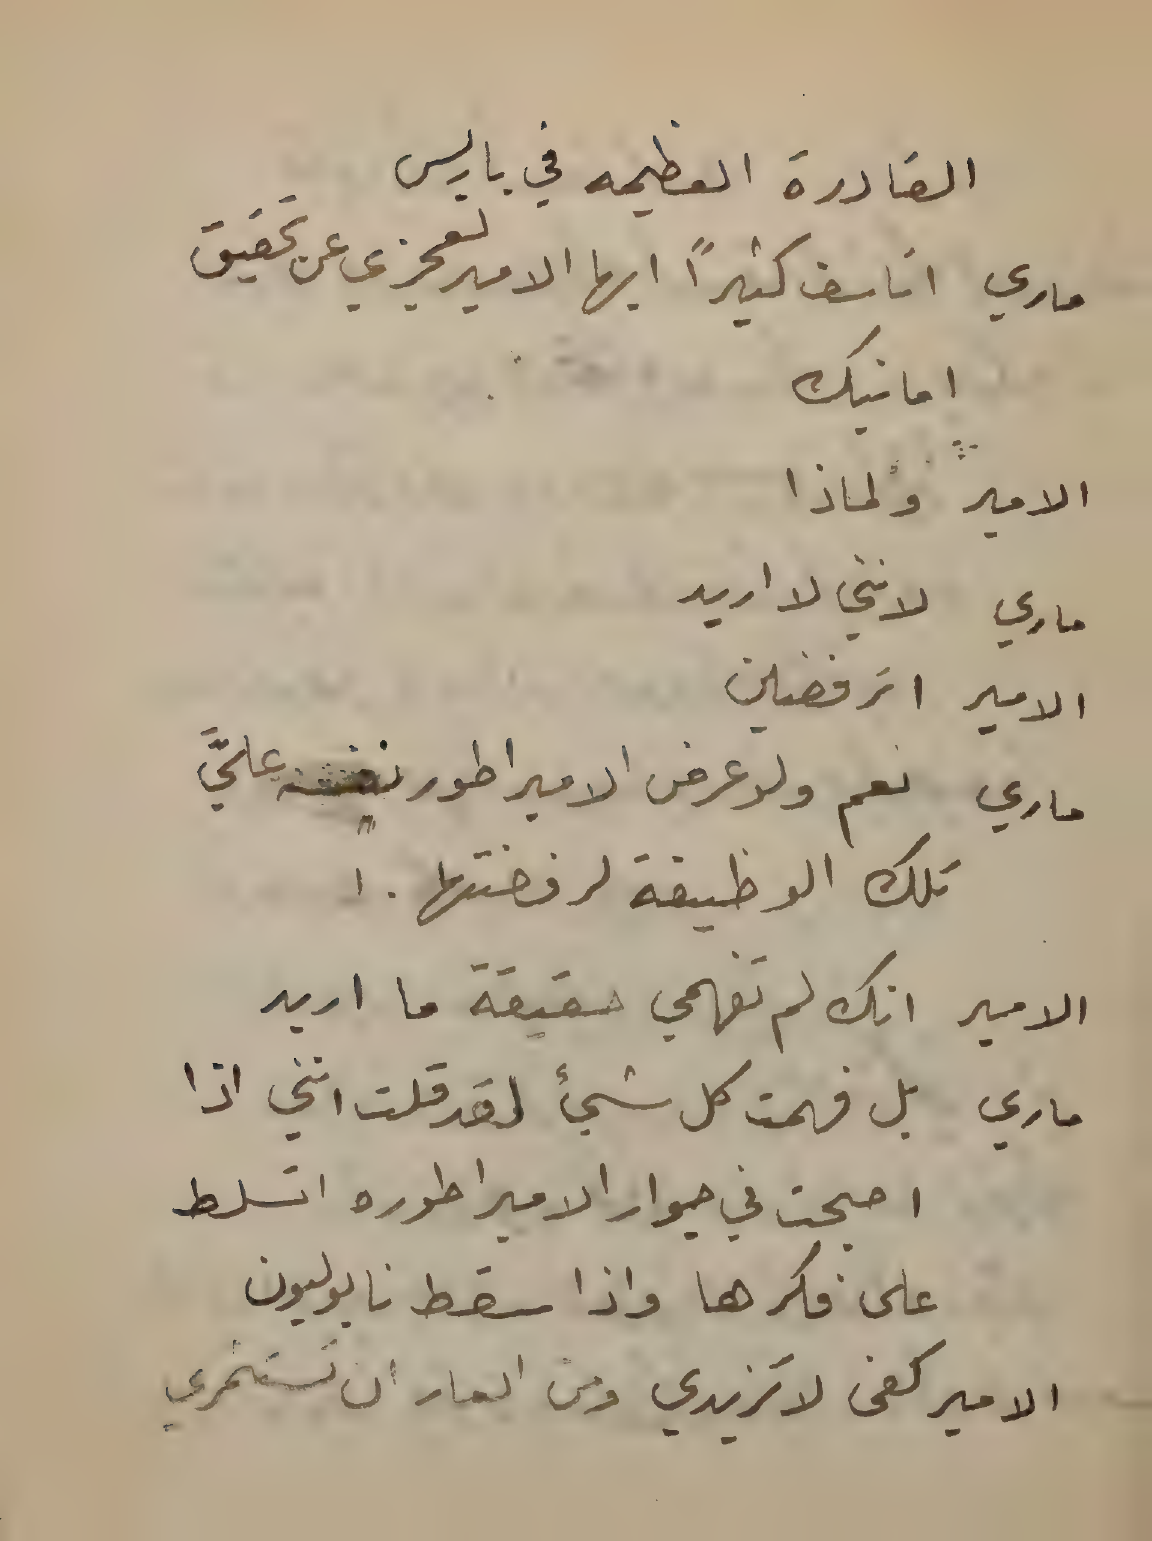 القادرة العظيمه في باريس
ماري اتاسف كثيراً ايها الامير لعجزي عن تحقيق
امانيك
الامير ولماذا
ماري لانني لا اريد
الامير اترفضين
ماري نعم ولو عرض الامبراطور نفسه عليَّ
تلك الوظيفة لرفضتها . ا
الامير انك لم تفهمي حقيقة ما اريد
ماري بل فهمت كل شيئ لقد قلت انني اذا
اصبحت في جوار الامبراطوره اتسلط
على فكرها واذا سقط نابوليون
الامير كفى لا تزيدي ومن العار ان تستمري